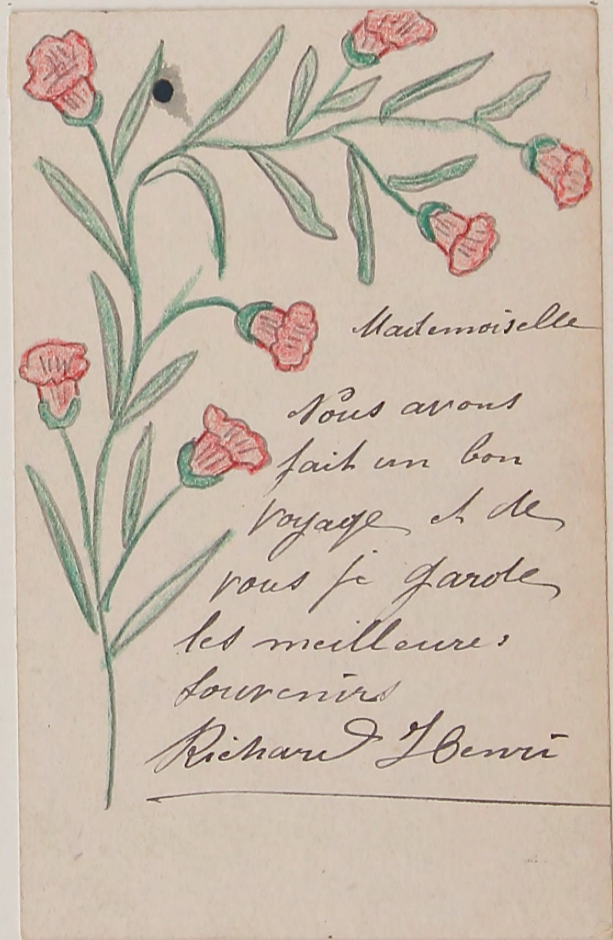 Mademoiselle
Nous avons
fait un bon
voyage et de
vous je garde
les meilleures
souvenirs
Richard Henri